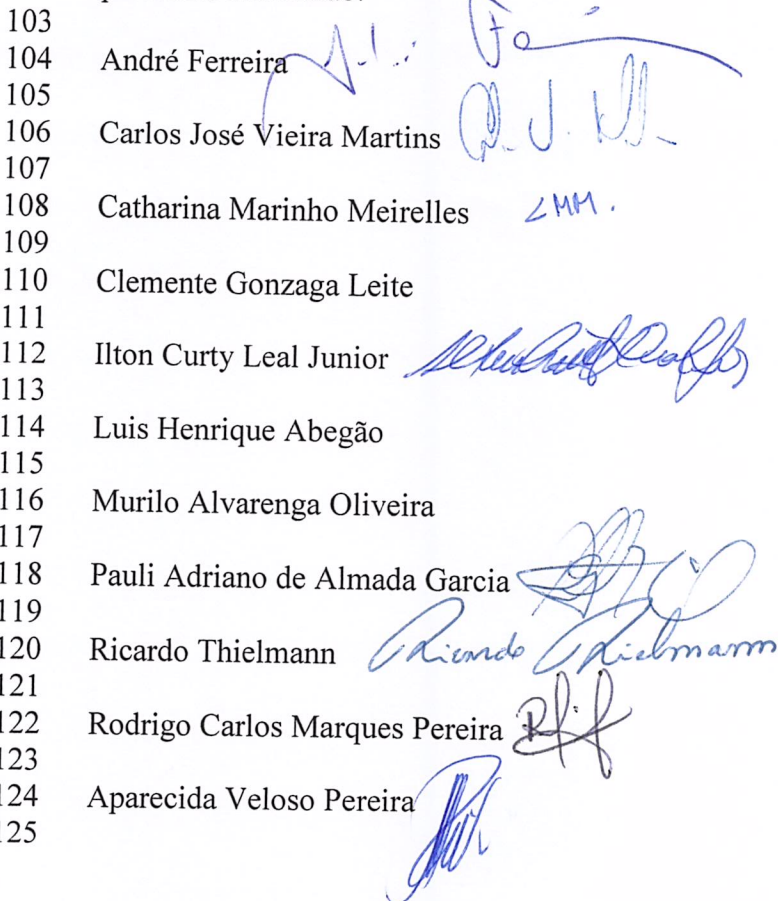 103
104 André Ferreira
105
106 Carlos José Vieira Martins
107
108 Catharina Marinho Meirelles CMM.
109
110 Clemente Gonzaga Leite
111
112 Ilton Curty Leal Junior
113
114 Luis Henrique Abegão
115
116 Murilo Alvarenga Oliveira
117
118 Pauli Adriano de Almada Garcia
119
120 Ricardo Thielmann Ricardo Thielmann
121
122 Rodrigo Carlos Marques Pereira
123
124 Aparecida Veloso Pereira
125